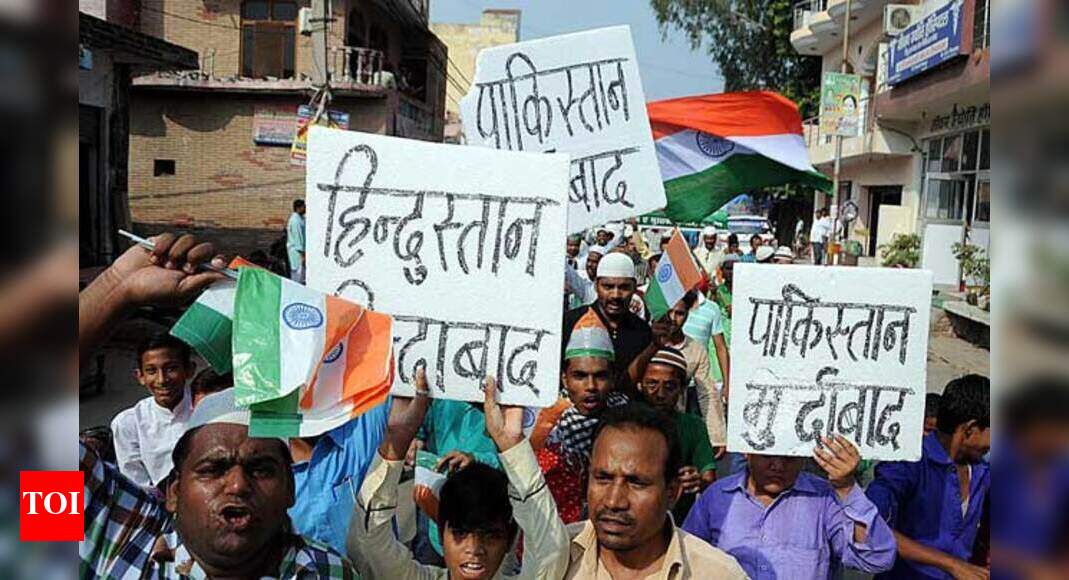 पाकिस्तान
बाद
हिन्दुस्तान
दाबाद
पाकिस्तान
मुर्दाबाद
TOI